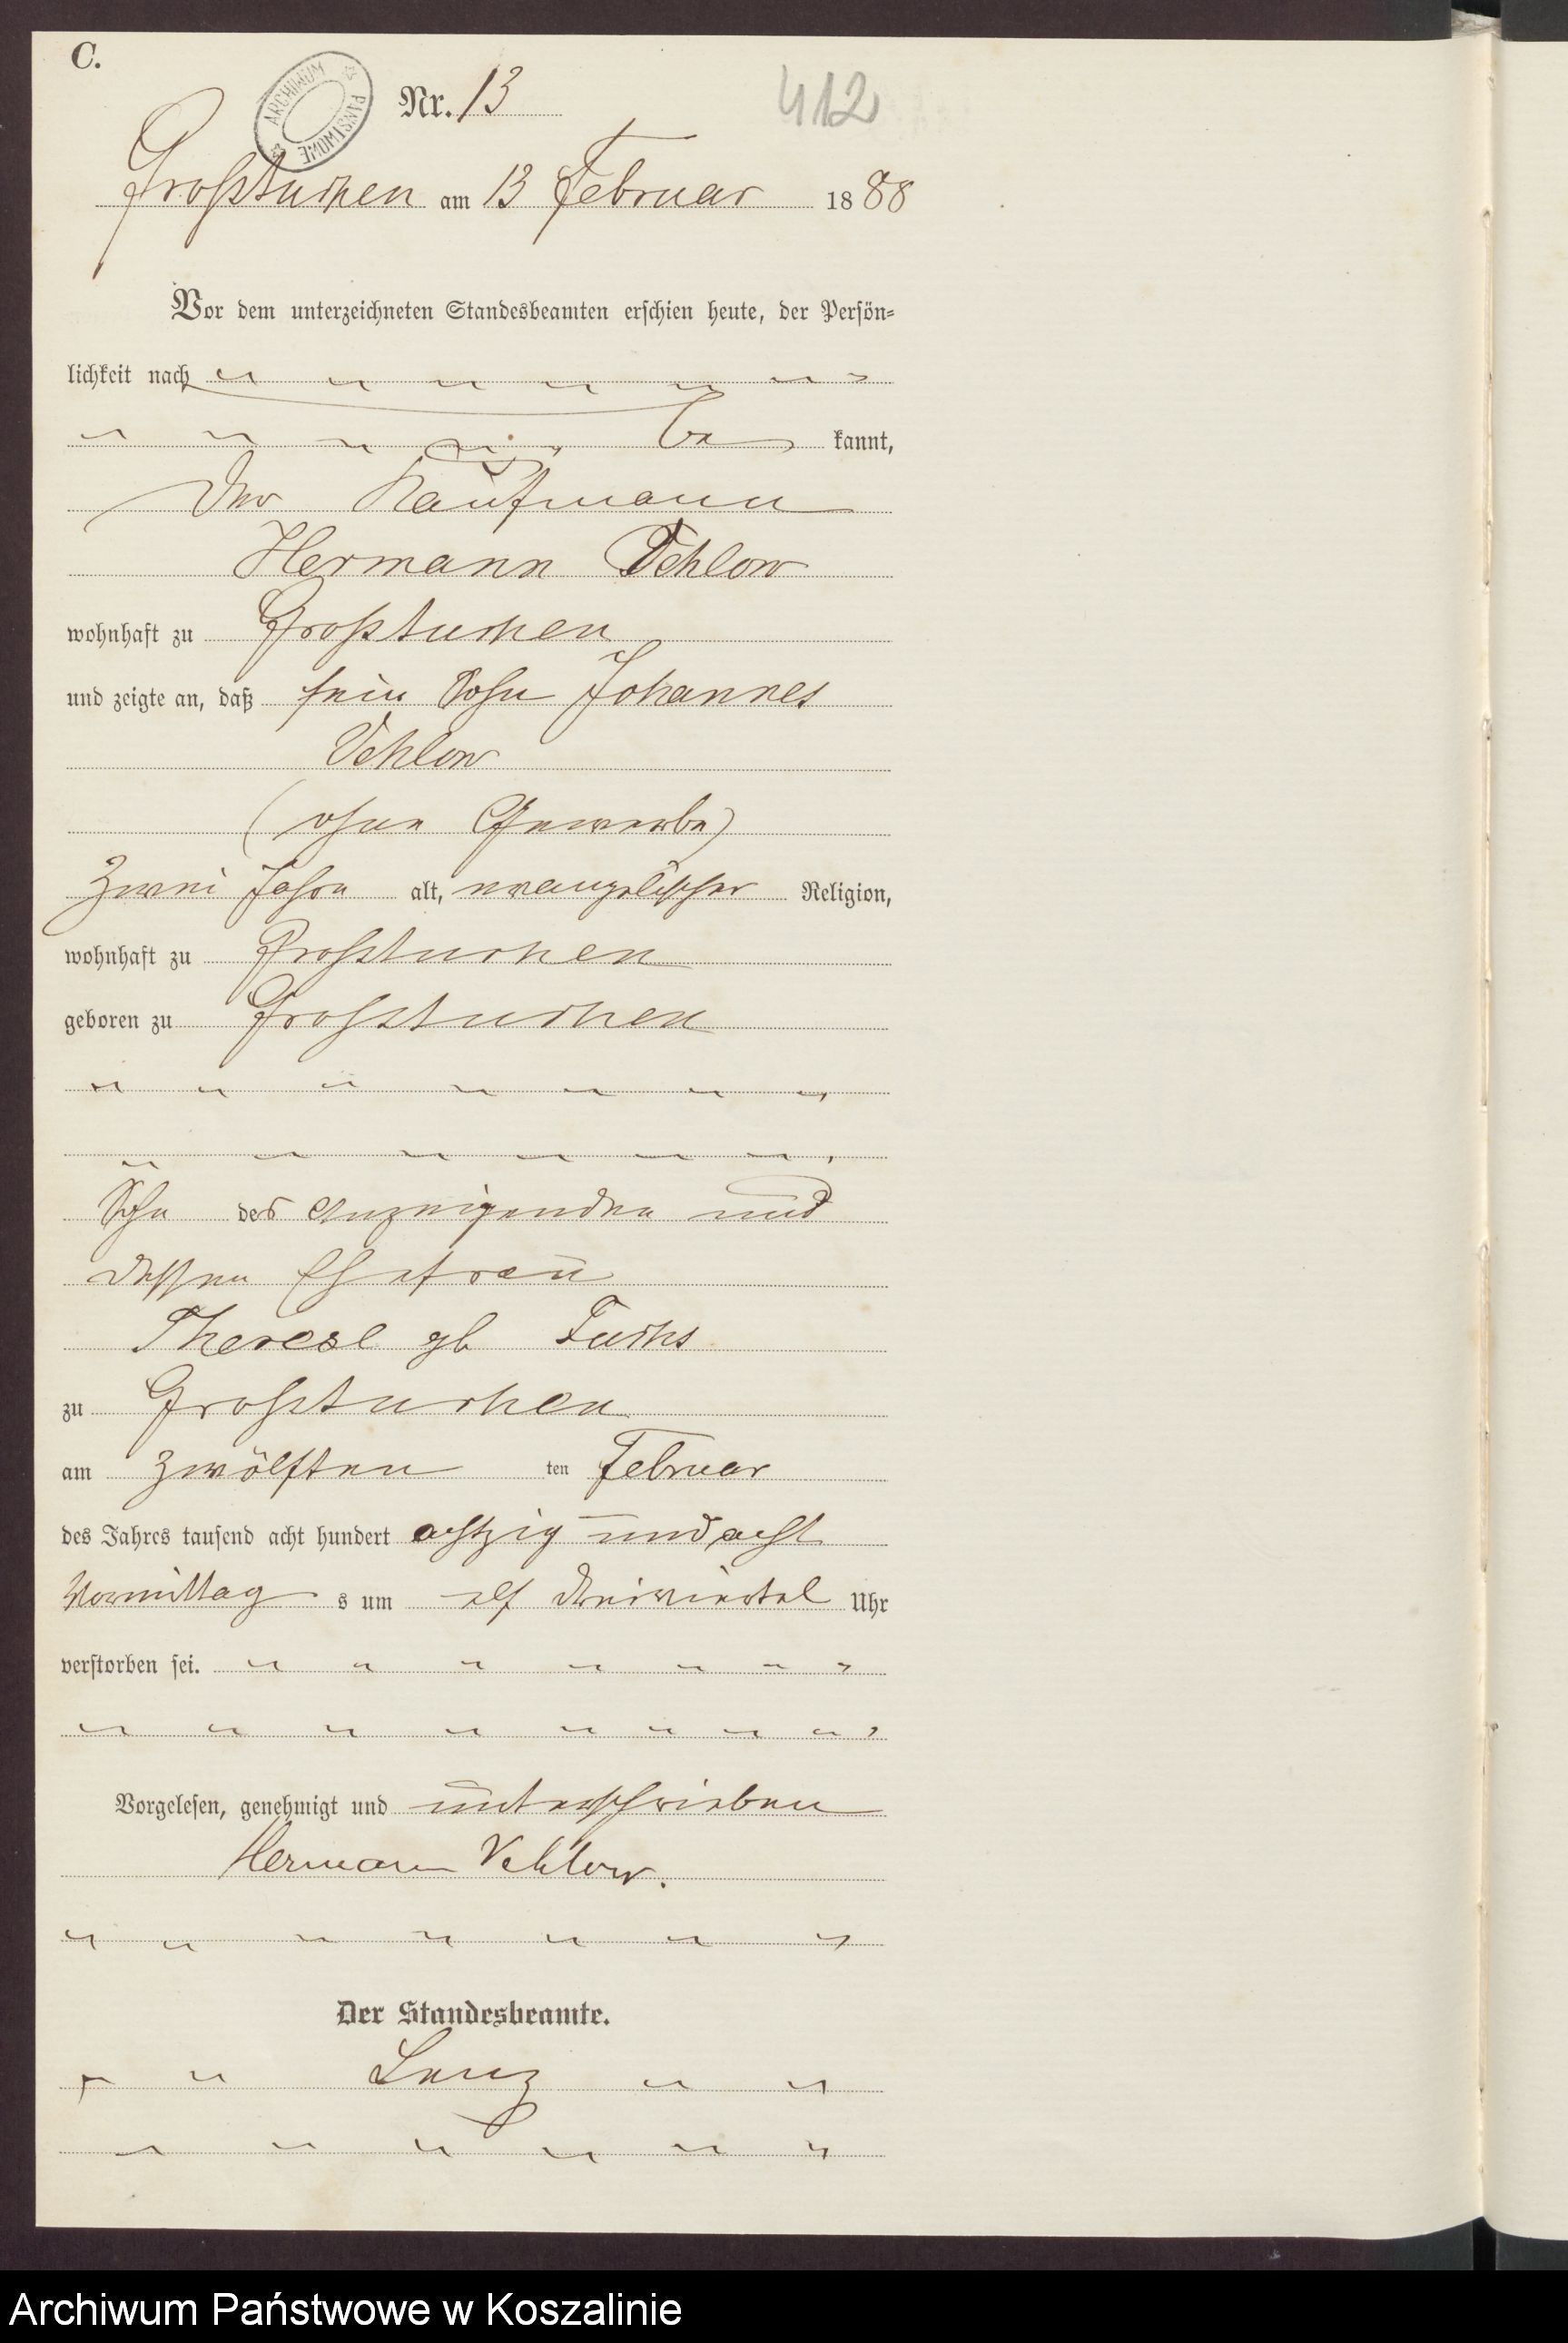 C.
ARCHIWUM PAŃSTWOWE
Nr. 13
412
Großtuchen am 13 Februar 1888
Vor dem unterzeichneten Standesbeamten erschien heute, der Persön-
lichkeit nach
be kannt,
der Kaufmann
Hermann Vehlow
wohnhaft zu Großtuchen
und zeigte an, daß sein Sohn Johannes
Vehlow
(ohne Gewerbe)
zwei Jahre alt, evangelischer Religion,
wohnhaft zu Großtuchen
geboren zu Großtuchen
Sohn des Anzeigenden und
dessen Ehefrau
Therese gb Fuchs
zu Großtuchen
am zwölften ten Februar
des Jahres tausend acht hundert achtzig und acht
Vormittag s um elf dreiviertel Uhr
verstorben sei.
Vorgelesen, genehmigt und unterschrieben
Hermann Vehlow.
Der Standesbeamte.
Lenz
Archiwum Państwowe w Koszalinie